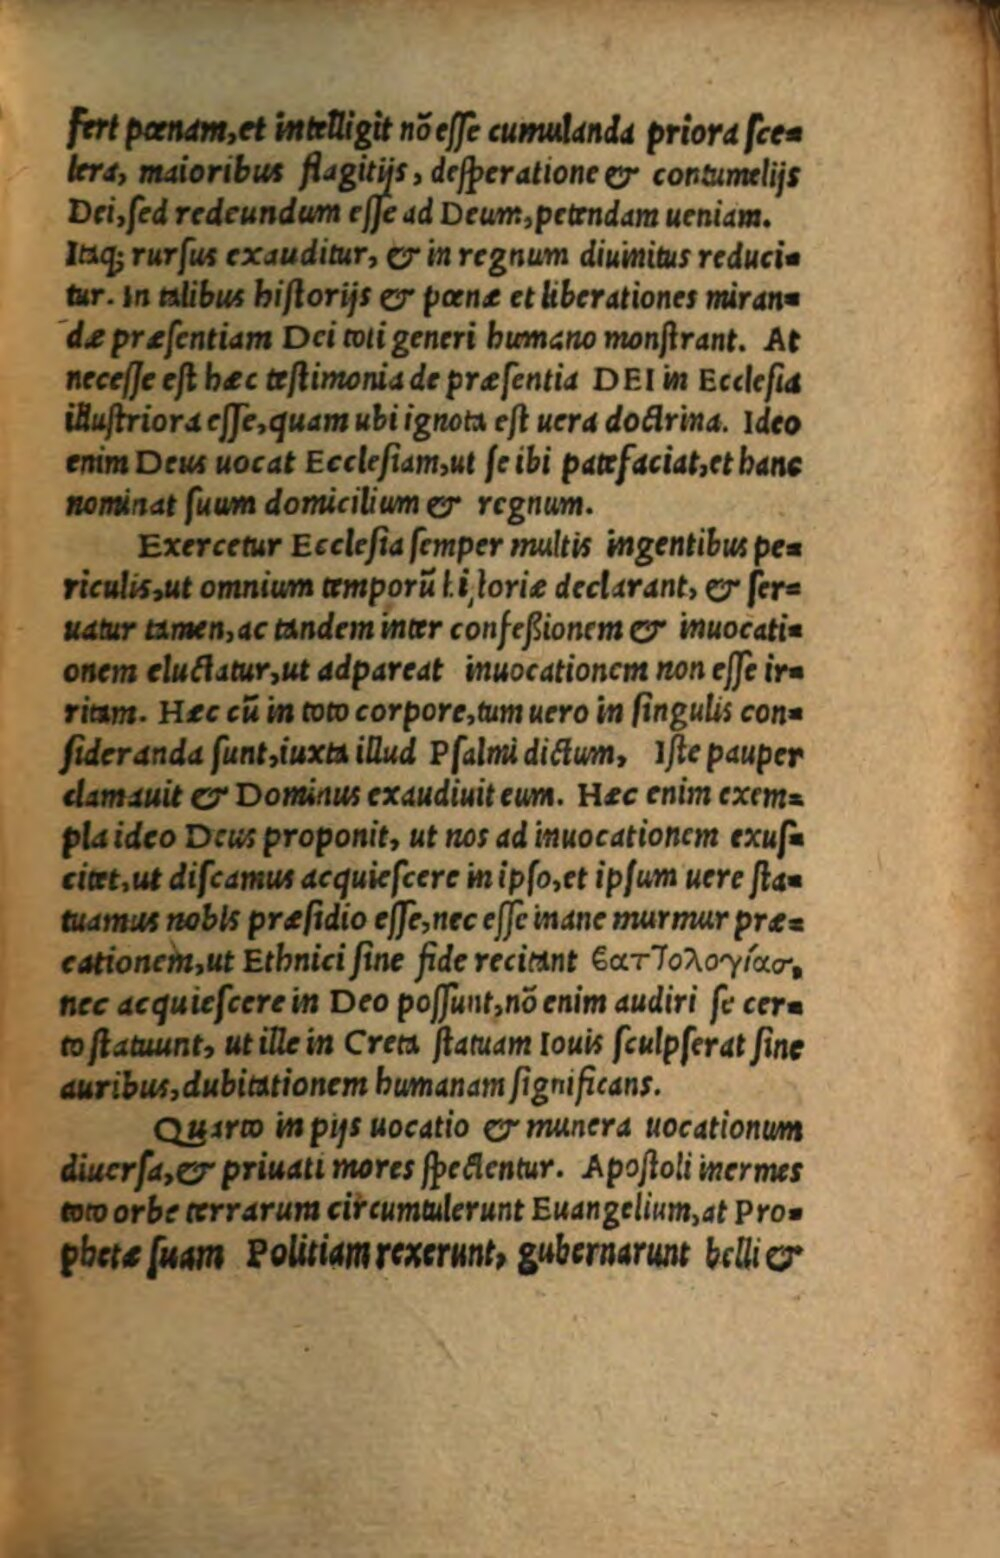 fert pœnam,et intelligit nõ eſſe cumulanda priora ſce-
lera, maioribus flagitijs, deſperatione & contumelijs
Dei,ſed redeundum eſſe ad Deum,petendam ueniam.
Itaq; rurſus exauditur, & in regnum diuinitus reduci-
tur. In talibus hiſtorijs & pœnæ et liberationes miran-
dæ præſentiam Dei toti generi humano monſtrant. At
neceſſe eſt hæc teſtimonia de præſentia DEI in Eccleſia
illuſtriora eſſe,quam ubi ignota eſt uera doctrina. Ideo
enim Deus uocat Eccleſiam,ut ſe ibi patefaciat,et hanc
nominat ſuum domicilium & regnum.
Exercetur Eccleſia ſemper multis ingentibus pe-
riculis,ut omnium temporũ hiſtoriæ declarant, & ſer-
uatur tamen,ac tandem inter confeßionem & inuocati-
onem eluctatur,ut adpareat inuocationem non eſſe ir-
ritam. Hæc cũ in toto corpore,tum uero in ſingulis con-
ſideranda ſunt,iuxta illud Pſalmi dictum, Iſte pauper
clamauit & Dominus exaudiuit eum. Hæc enim exem-
pla ideo Deus proponit, ut nos ad inuocationem exuſ-
citet,ut diſcamus acquieſcere in ipſo,et ipſum uere ſta-
tuamus nobis præſidio eſſe,nec eſſe inane murmur præ-
cationem,ut Ethnici ſine fide recitant ϐατΤολογίασ,
nec acquieſcere in Deo poſſunt,nõ enim audiri ſe cer-
to ſtatuunt, ut ille in Creta ſtatuam Iouis ſculpſerat ſine
auribus,dubitationem humanam ſignificans.
Quarto in pijs uocatio & munera uocationum
diuerſa,& priuati mores ſpectentur. Apoſtoli inermes
toto orbe terrarum circumtulerunt Euangelium,at Pro-
phetæ ſuam Politiam rexerunt, gubernarunt belli &